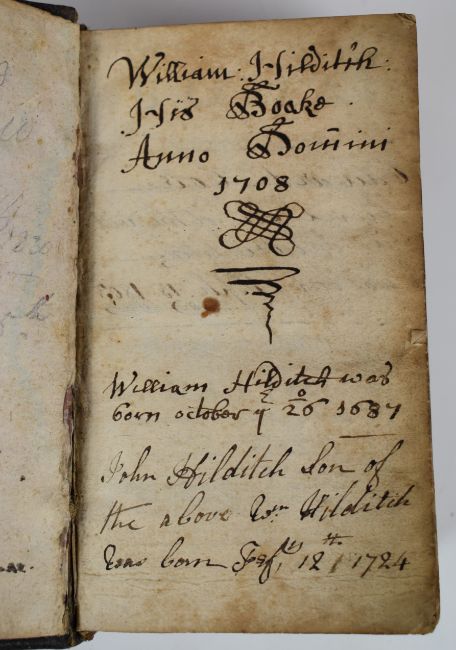 William Hilditch
His Booke
Anno Dom̅ini
1708
William Hilditch was
born october yᵉ 26 1687
John Hilditch Son of
the above Wm Hilditch
was born 12th 1724